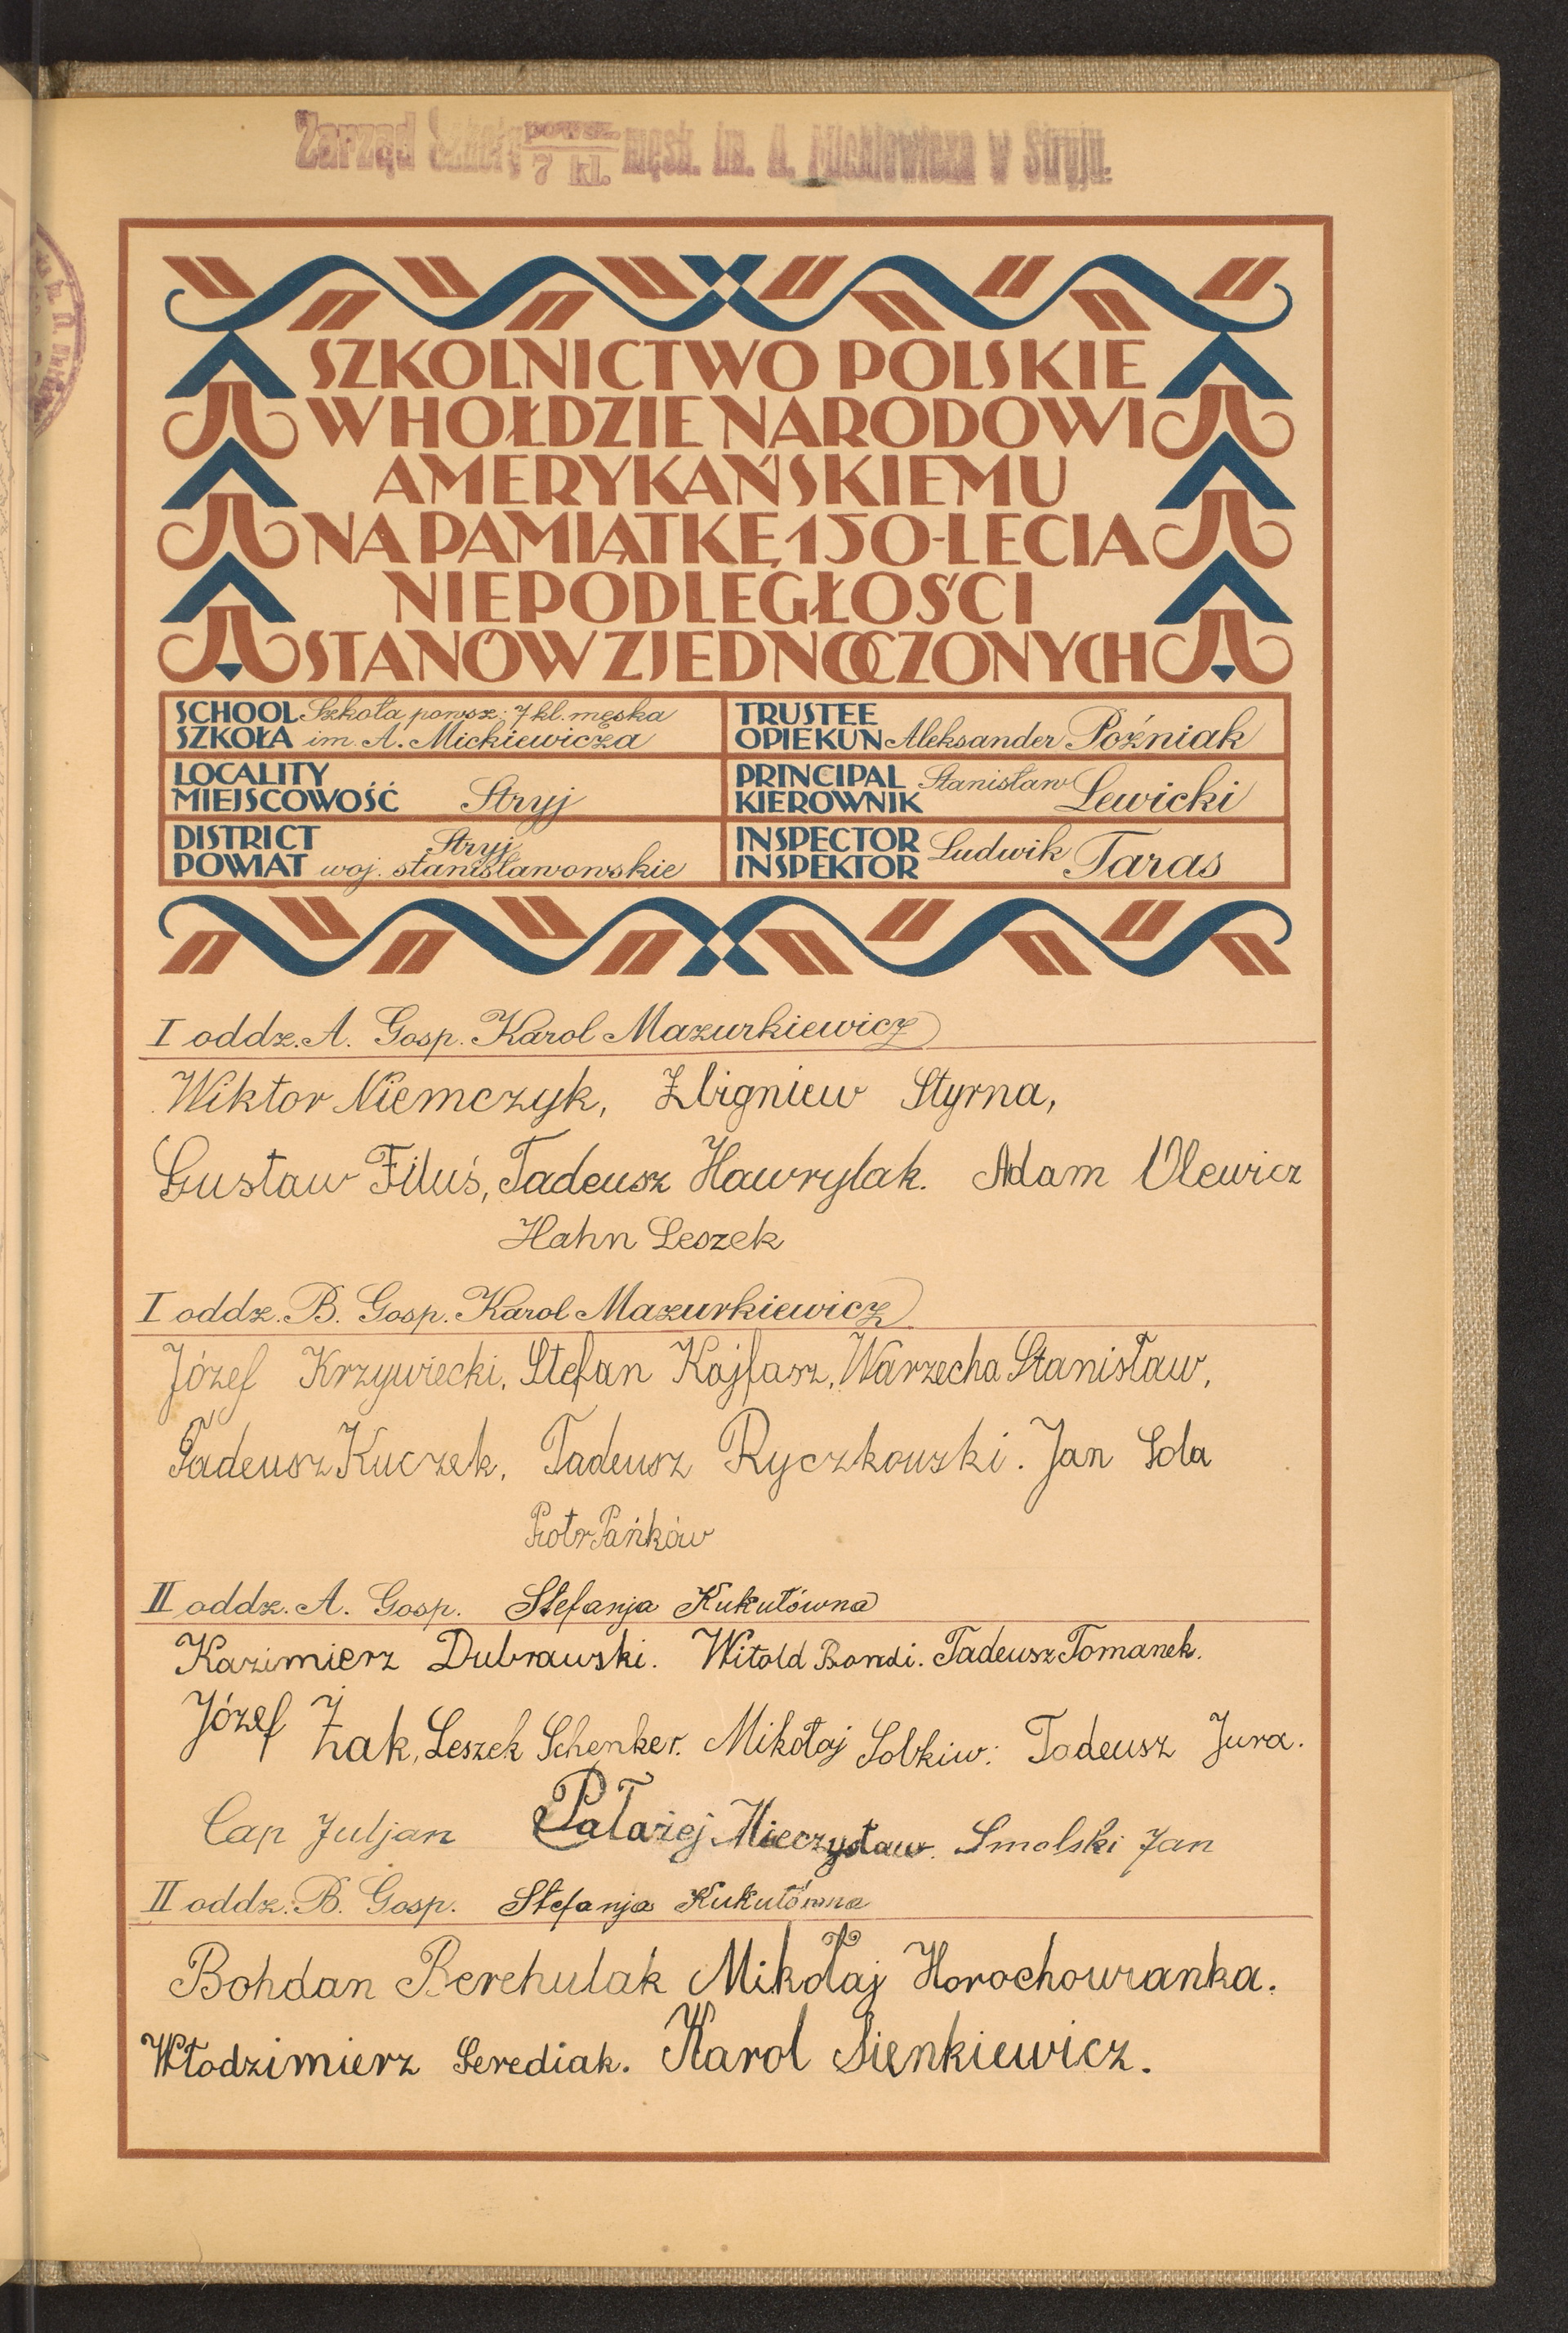 Zarząd Szkoły powsz. 7 kl. męsk. im. A. Mickiewicza w Stryju.
SZKOLNICTWO POLSKIE
W HOŁDZIE NARODOWI
AMERYKAŃSKIEMU
NA PAMIĄTKĘ 150-LECIA
NIEPODLEGŁOŚCI
STANÓW ZJEDNOCZONYCH
SCHOOL Szkoła powsz. 7 kl. męska
SZKOŁA im A. Mickiewicza
TRUSTEE
OPIEKUN Aleksander Poźniak
LOCALITY
MIEJSCOWOŚĆ Stryj
PRINCIPAL Stanisław
KIEROWNIK Lewicki
DISTRICT Stryj
POWIAT woj. stanisławowskie
INSPECTOR Ludwik
INSPEKTOR Taras
I oddz. A. Gosp. Karol Mazurkiewicz
Wiktor Niemczyk, Zbigniew Styrna,
Gustaw Filuś, Tadeusz Hawrylak. Adam Ulewicz
Hahn Leszek
I oddz. B. Gosp. Karol Mazurkiewicz
Józef Krzywiecki, Stefan Kajfasz, Warzecha Stanisław,
Tadeusz Kuczek, Tadeusz Ryczkowski. Jan Sola
Piotr Pańków
II oddz. A. Gosp. Stefanja Kukułówna
Kazimierz Dubrawski. Witold Bondi. Tadeusz Tomanek.
Józef Żak, Leszek Schenker. Mikołaj Sobkiw. Tadeusz Jura.
Cap Juljan Pałazej Mieczysław. Smolski Jan
II oddz. B. Gosp. Stefanja Kukułówna
Bohdan Berehulak Mikołaj Horochowianka.
Włodzimierz Serediak. Karol Sienkiewicz.